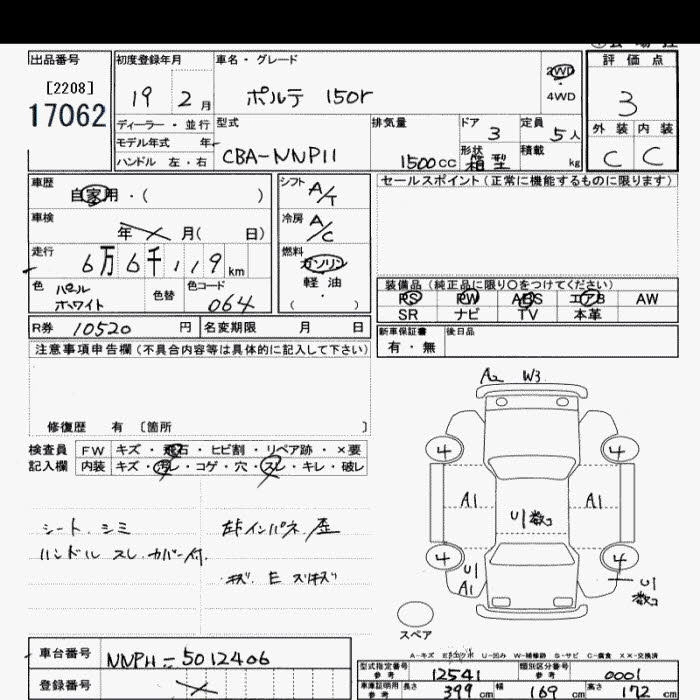 出品番号
[2208]
17062
初度登録年月
19 2月
車名・グレード
ポルテ 150r
2WD
4WD
評価点
3
外装 内装
C C
ディーラー・並行
モデル年式 年
ハンドル 左・右
型式
CBA-NNP11
排気量
1500cc
ドア 3
形状
箱型
定員 5人
積載 kg
車歴
自家用・( )
車検
年 月( 日)
走行
6万6千119km
色
パール
ホワイト
色替
色コード
064
シフト A/T
冷房 A/C
燃料
ガソリン
軽油
( ・ )
セールスポイント(正常に機能するものに限ります)
装備品(純正品に限り○をつけてください)
PS PW ABS エアB AW
SR ナビ TV 本革
R券 10520円
名変期限 月 日
新車保証書
有・無
後日品
注意事項申告欄(不具合内容等は具体的に記入して下さい)
修復歴 有 〔箇所 〕
検査員
記入欄
FW キズ・飛石・ヒビ割・リペア跡・×要
内装 キズ・汚レ・コゲ・穴・スレ・キレ・破レ
シート、シミ
ハンドル スレ、カバー付
左下インパネ、歪
キズ、E スリキズ
A2 W3
4 4
A1 A1
U1数コ
4 4
U1
A1
U1
数コ
スペア
A-キズ E-エクボ U-凹み W-補修跡 S-サビ C-腐食 XX-交換済
車台番号
NNP11-5012406
登録番号
型式指定番号
参考
12541
類別区分番号
参考
0001
車庫証明用
参考
長さ 399cm
幅 169cm
高さ 172cm